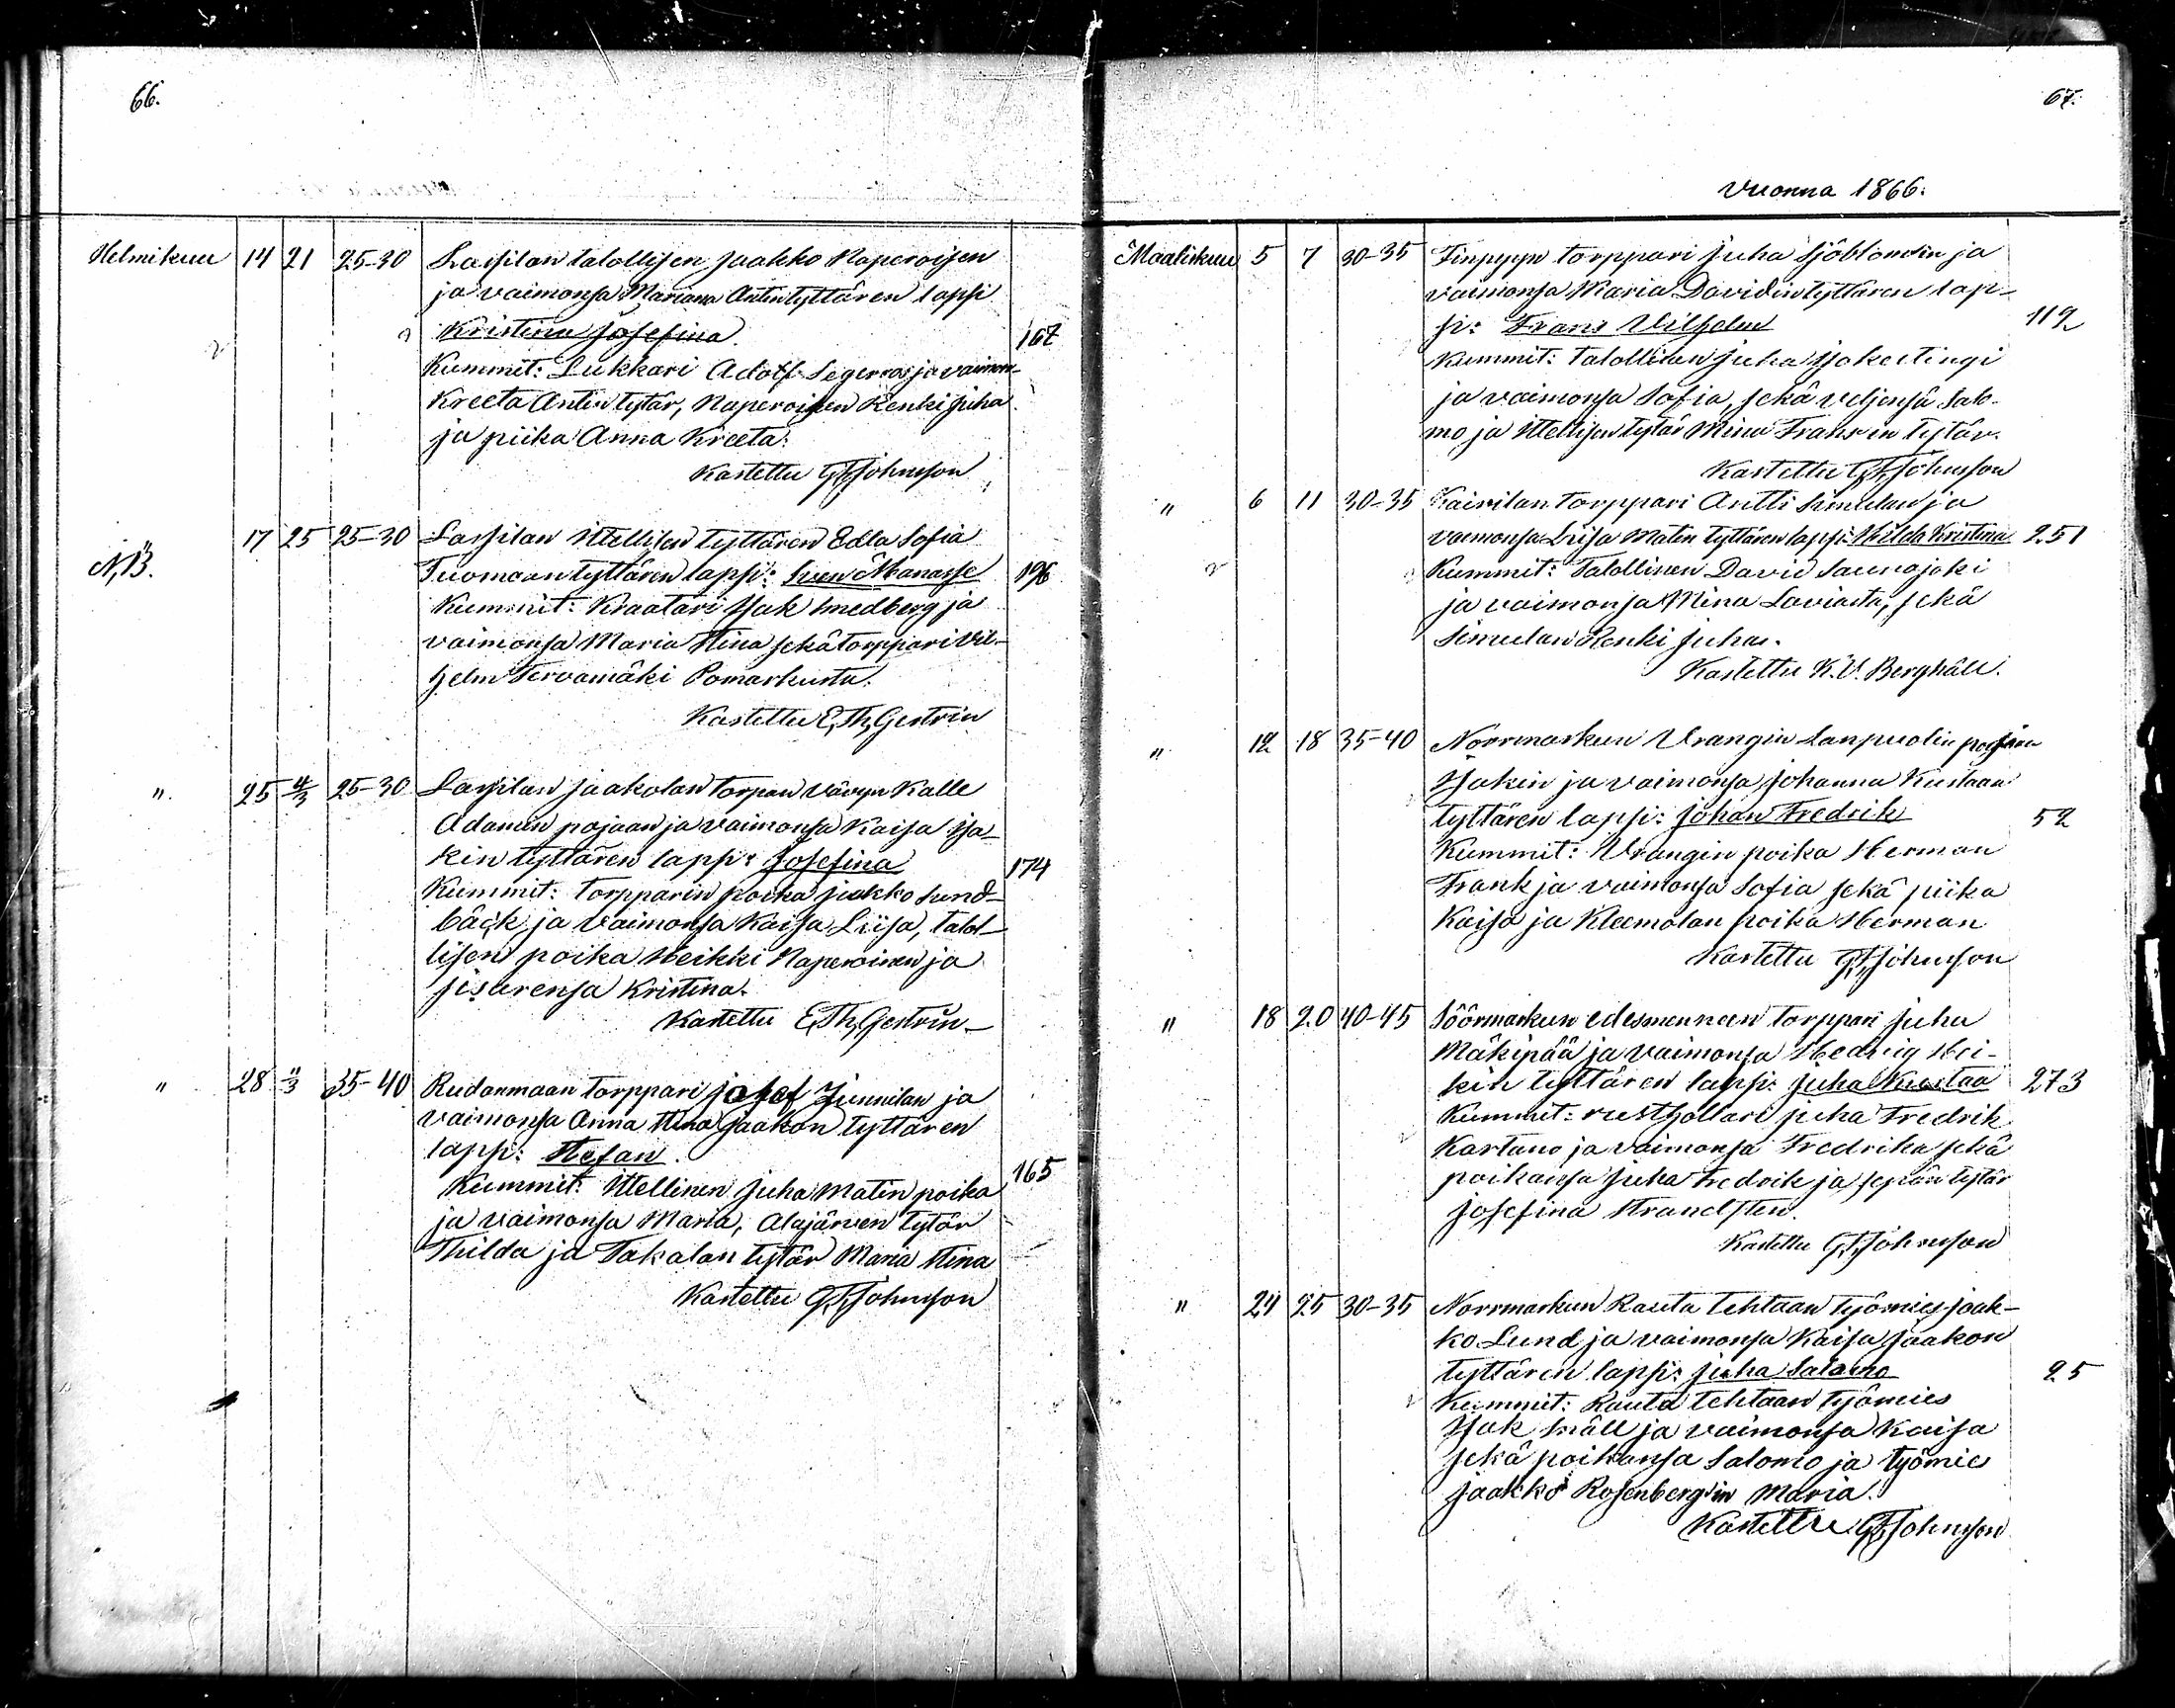 66.
Helmikuu 14 21 25-30 Lassilan talollisen Jaakko Naperoisen
ja vaimonsa Mariana Antin tyttären lapsi
Kristina Josefina. 167
Kummit: Lukkari Adolf Segerroos ja vaimon-
Kreeta Antin tytär, Naperoisen Renki Juha
ja piika Anna Kreeta.
Kastettu G,F,Johnsson
N,B. " 17 25 25-30 Lassilan Ittellisen tyttären Edla Sofia
Tuomaan tyttären lapsi: Sven Manasse 196
Kummit: Kraatari Isak Smedberg ja
vaimonsa Maria Stina sekä torppari Vil-
helm Tervamäki Pomarkusta.
Kastettu E,Th,Gestrin
" 25 4/3 25-30 Lassilan Jaakolan torpan Vävyn Kalle
Adamin pojaan ja vaimonsa Kaisa Isa-
kin tyttären lapsi: Josefina 174
Kummit: torpparin poika Jaakko Sund-
bäck ja vaimonsa Kaisa Liisa, talol-
lisen poika Heikki Naperoinen ja
sisarensa Kristina.
Kastettu E,Th,Gestrin
" 28 11/3 35-40 Rudanmaan torppari Josef Junnilan ja
vaimonsa Anna Stina Jaakon tyttären
lapsi: Stefan. 165
Kummit: Ittellinen Juha Matin poika
ja vaimonsa Maria, Alajärven tytär
Thilda ja Takalan tytär Maria Stina
Kastettu G,F,Johnsson
67.
Vuonna 1866.
Maaliskuu 5 7 30-35 Finpyyn torppari Juha Sjöblomin ja
vaimonsa Maria Davidin tyttären lap-
si: Frans Vilhelm 112
Kummit: talollinen Juha
ja vaimonsa Sofia, sekä veljensä Salo-
mo ja Ittellisen tytär Mina Fransin tytär.
Kastettu G,F,Johnsson
" 6 11 30-35 Kairilan torppari Antti Simulan ja
vaimonsa Liisa Matin tyttären lapsi: Hilda Kristina 251
Kummit: Talollinen David Saunajoki
ja vaimonsa Mina Laviasta, sekä
Simulan Renki Juha.
Kastettu K.V. Berghäll.
" 12 18 35-40 Norrmarkun Vrangin Lanpuolin pojaan
Isakin ja vaimonsa Johanna Kustaan
tyttären lapsi: Johan Fredrik 52
Kummit: Vrangin poika Herman
Frank ja vaimonsa Sofia sekä piika
Kaisa ja Kleemolan poika Herman
Kastettu G,F,Johnsson
" 18 20 40-45 Söörmarkun edesmennen torppari Juha
Mäkipää ja vaimonsa Hedvig Hei-
kin tyttären lapsi: Juha Kustaa 273
Kummit: rusthollari Juha Fredrik
Kartano ja vaimonsa Fredrika sekä
poikansa Juha Fredrik ja sepän tytär
Josefina Strandsten.
Kastettu G,F,Johnsson
" 24 25 30-35 Norrmarkun Rauta tehtaan työmies Jaak-
ko Lund ja vaimonsa Kaisa Jaakon
tyttären lapsi: Juha Salomo 25
Kummit: Rauta tehtaan työmies
Isak Smäll ja vaimonsa Kaisa
sekä poikansa Salomo ja työmies
Jaakko Rosenberg'in Maria.
Kastettu G,F,Johnsson